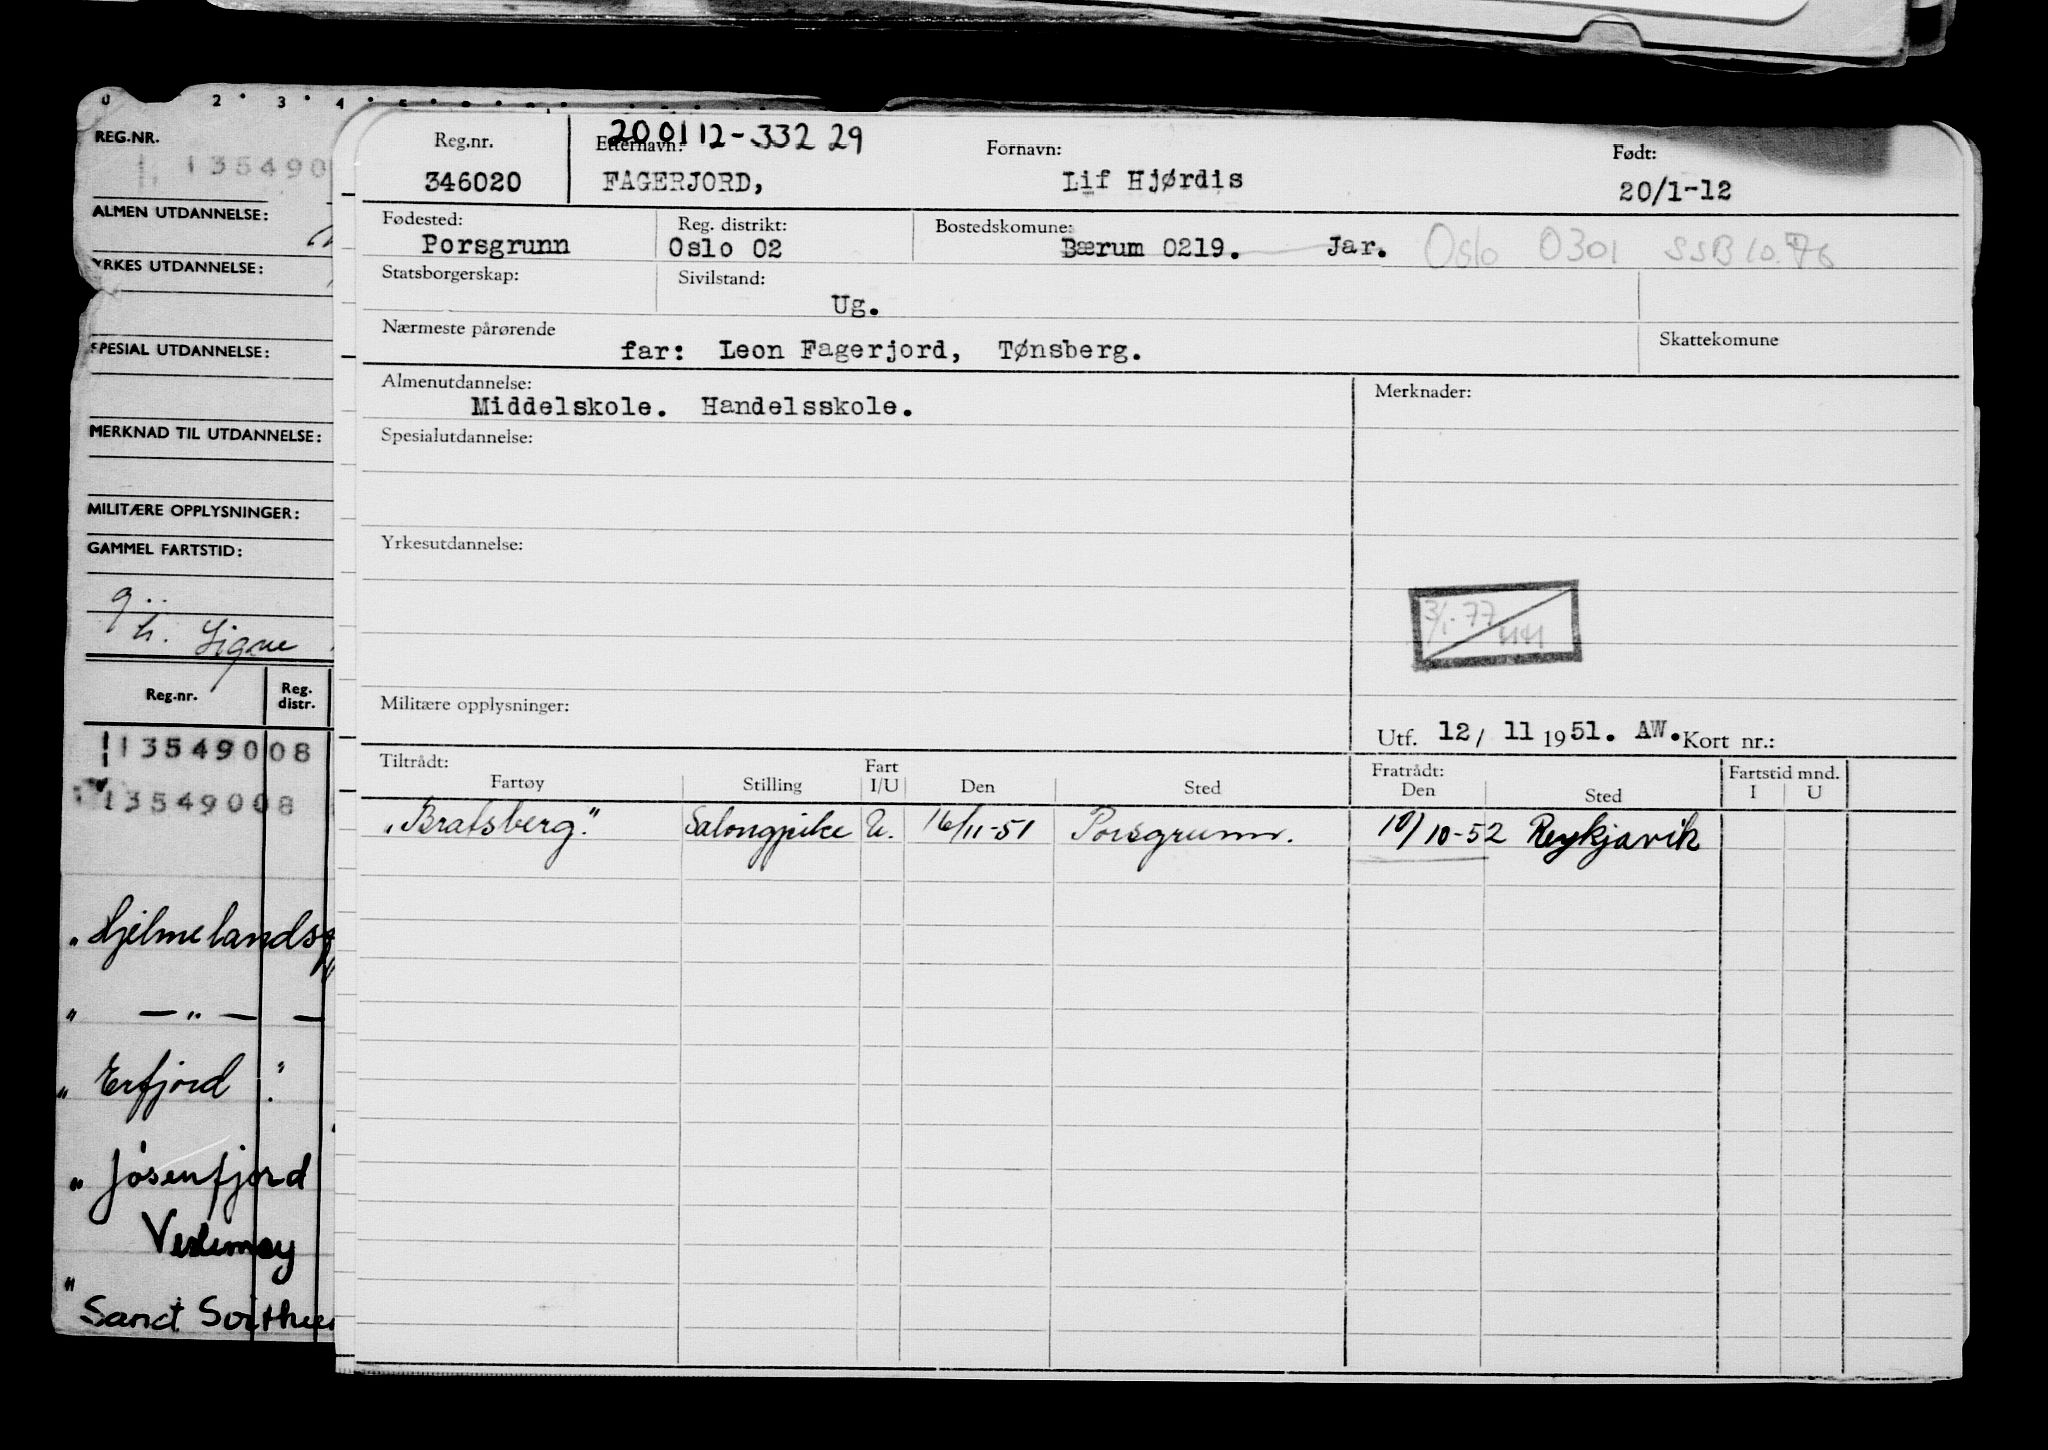 0 2 3 4
REG.NR.
13549008
ALMEN UTDANNELSE:
YRKES UTDANNELSE:
SPESIAL UTDANNELSE:
MERKNAD TIL UTDANNELSE:
MILITÆRE OPPLYSNINGER:
GAMMEL FARTSTID:
h. Signe
Reg.nr. Reg. distr.
13549008
13549008
"Hjelmelandsf
" — " — —
" Erfjord "
" Jøsenfjord
Veslemøy
"
Sanct Svithun
200112-33229
Reg.nr. Etternavn: Fornavn: Født:
346020 FAGERJORD, Lif Hjørdis 20/1-12
Fødested: Reg. distrikt: Bostedskomune:
Porsgrunn Oslo 02 Bærum 0219. Jar. Oslo 0301 SSB 10.76
Statsborgerskap: Sivilstand:
Ug.
Nærmeste pårørende Skattekomune
far: Leon Fagerjord, Tønsberg.
Almenutdannelse: Merknader:
Middelskole. Handelsskole.
Spesialutdannelse:
Yrkesutdannelse:
3/1-77
Militære opplysninger:
Utf. 12/ 11 1951. AW. Kort nr.:
Tiltrådt: Fratrådt: Fartstid mnd.
Fartøy Stilling Fart I/U Den Sted Den Sted I U
"Bratsberg." Salongpike U. 16/11-51 Porsgrunn. 10/10-52 Reykjavik